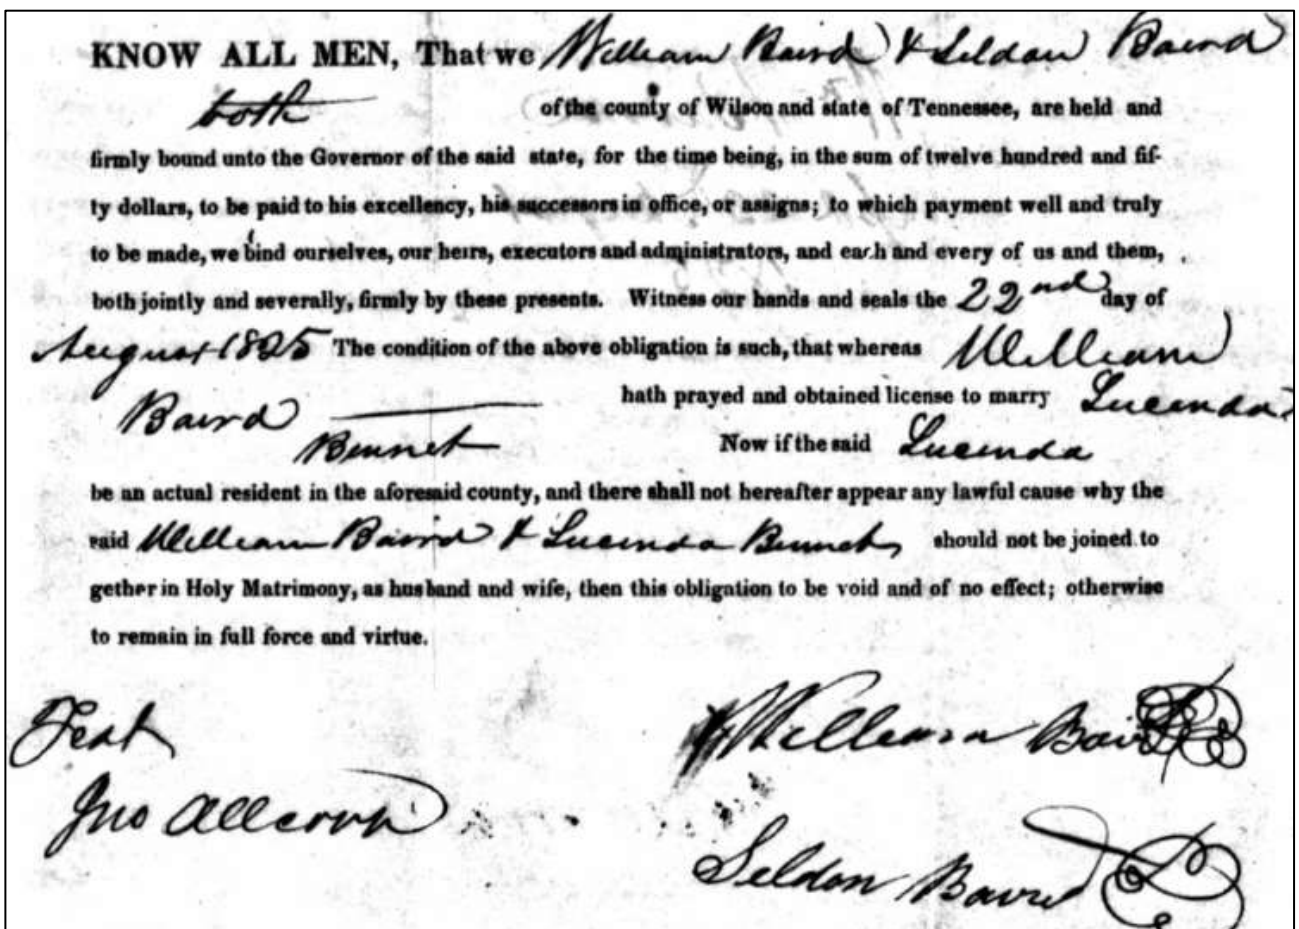 KNOW ALL MEN, That we William Baird & Seldon Baird
both of the county of Wilson and state of Tennessee, are held and
firmly bound unto the Governor of the said state, for the time being, in the sum of twelve hundred and fif-
ty dollars, to be paid to his excellency, his successors in office, or assigns; to which payment well and truly
to be made, we bind ourselves, our heirs, executors and administrators, and each and every of us and them,
both jointly and severally, firmly by these presents. Witness our hands and seals the 22nd day of
August 1825 The condition of the above obligation is such, that whereas William
Baird hath prayed and obtained license to marry Lucinda
Bennet Now if the said Lucinda
be an actual resident in the aforesaid county, and there shall not hereafter appear any lawful cause why the
said William Baird & Lucinda Bennet should not be joined to
gether in Holy Matrimony, as husband and wife, then this obligation to be void and of no effect; otherwise
to remain in full force and virtue.
Test William Baird
Jno Allcorn
Seldon Baird